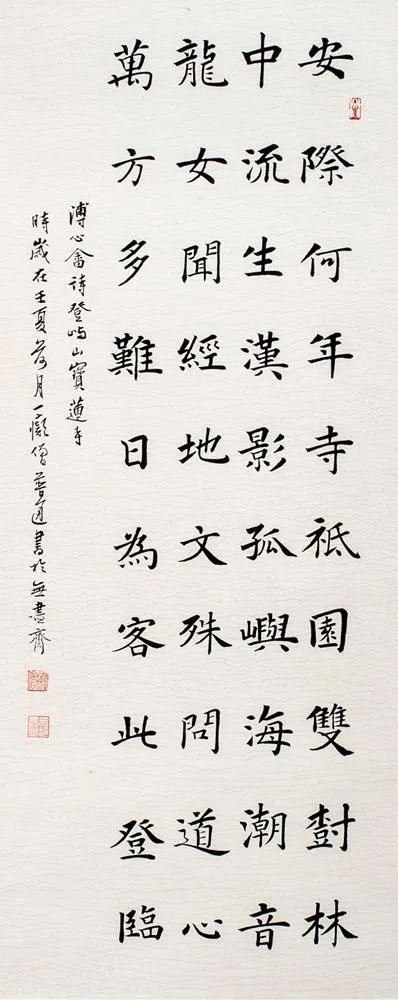 安際何年寺祇園雙樹林
中流生漢影孤嶼海潮音
龍女聞經地文殊問道心
萬方多難日為客此登臨
溥心畬詩登屿山寶蓮寺
時歲在壬夏荷月一僧普書於無盡齊